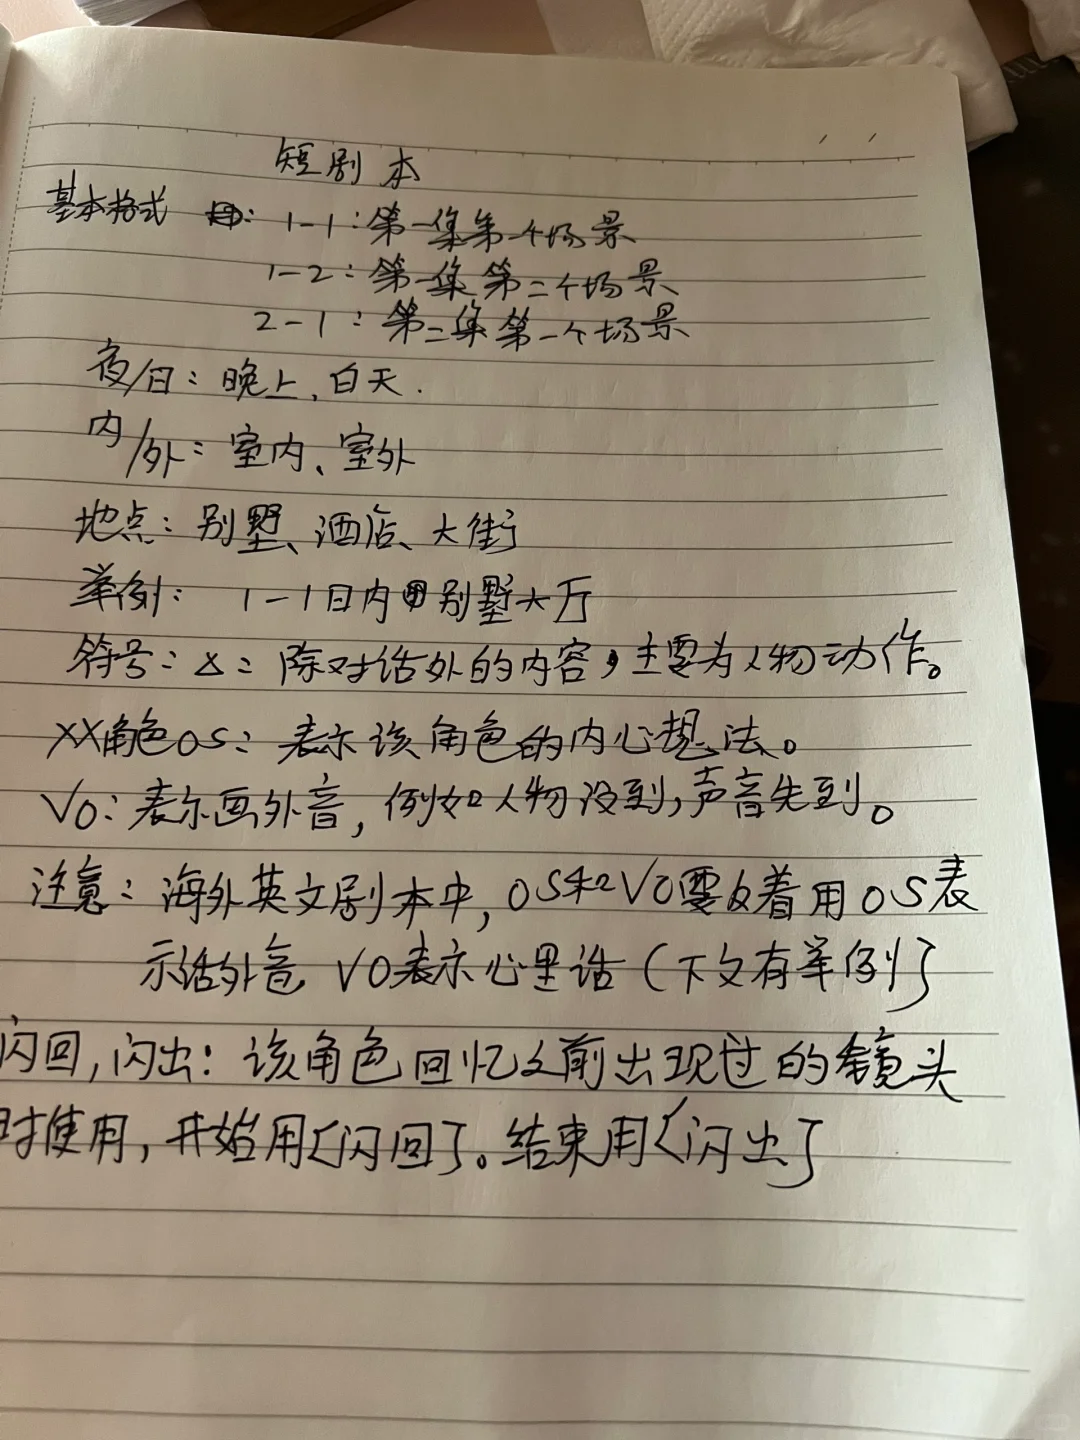 短剧本
基本格式：1-1：第一集第一个场景
1-2：第一集第二个场景
2-1：第二集第一个场景
夜/日：晚上、白天.
内/外：室内、室外
地点：别墅、酒店、大街
举例：1-1日内别墅大厅
符号：△：除对话外的内容，主要为人物动作。
XX角色OS：表示该角色的内心想法。
VO：表示画外音，例如人物没到，声音先到。
注意：海外英文剧本中，OS和VO要反着用OS表
示话外音 VO表示心里话（下文有举例）
闪回，闪出：该角色回忆之前出现过的镜头
时使用，开始用[闪回]。结束用[闪出]